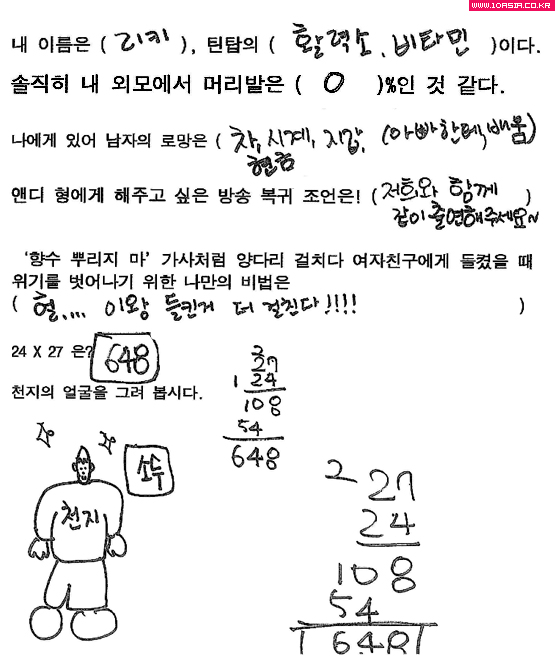 WWW.10ASIA.CO.KR
내 이름은 ( 리키 ), 틴탑의 ( 활력소, 비타민 )이다.
솔직히 내 외모에서 머리발은 ( 0 )%인 것 같다.
나에게 있어 남자의 로망은 ( 차, 시계, 지갑, (아빠한테 배움)
현금
앤디 형에게 해주고 싶은 방송 복귀 조언은! (저희와 함께 )
같이 출연해주세요~
‘향수 뿌리지 마’ 가사처럼 양다리 걸치다 여자친구에게 들켰을 때
위기를 벗어나기 위한 나만의 비법은
( 헐.... 이왕 들킨거 더 걸친다!!!! )
24 X 27 은? 648
천지의 얼굴을 그려 봅시다.
2
27
1 24
108
54
648
소두
천지
2 27
24
108
54
648